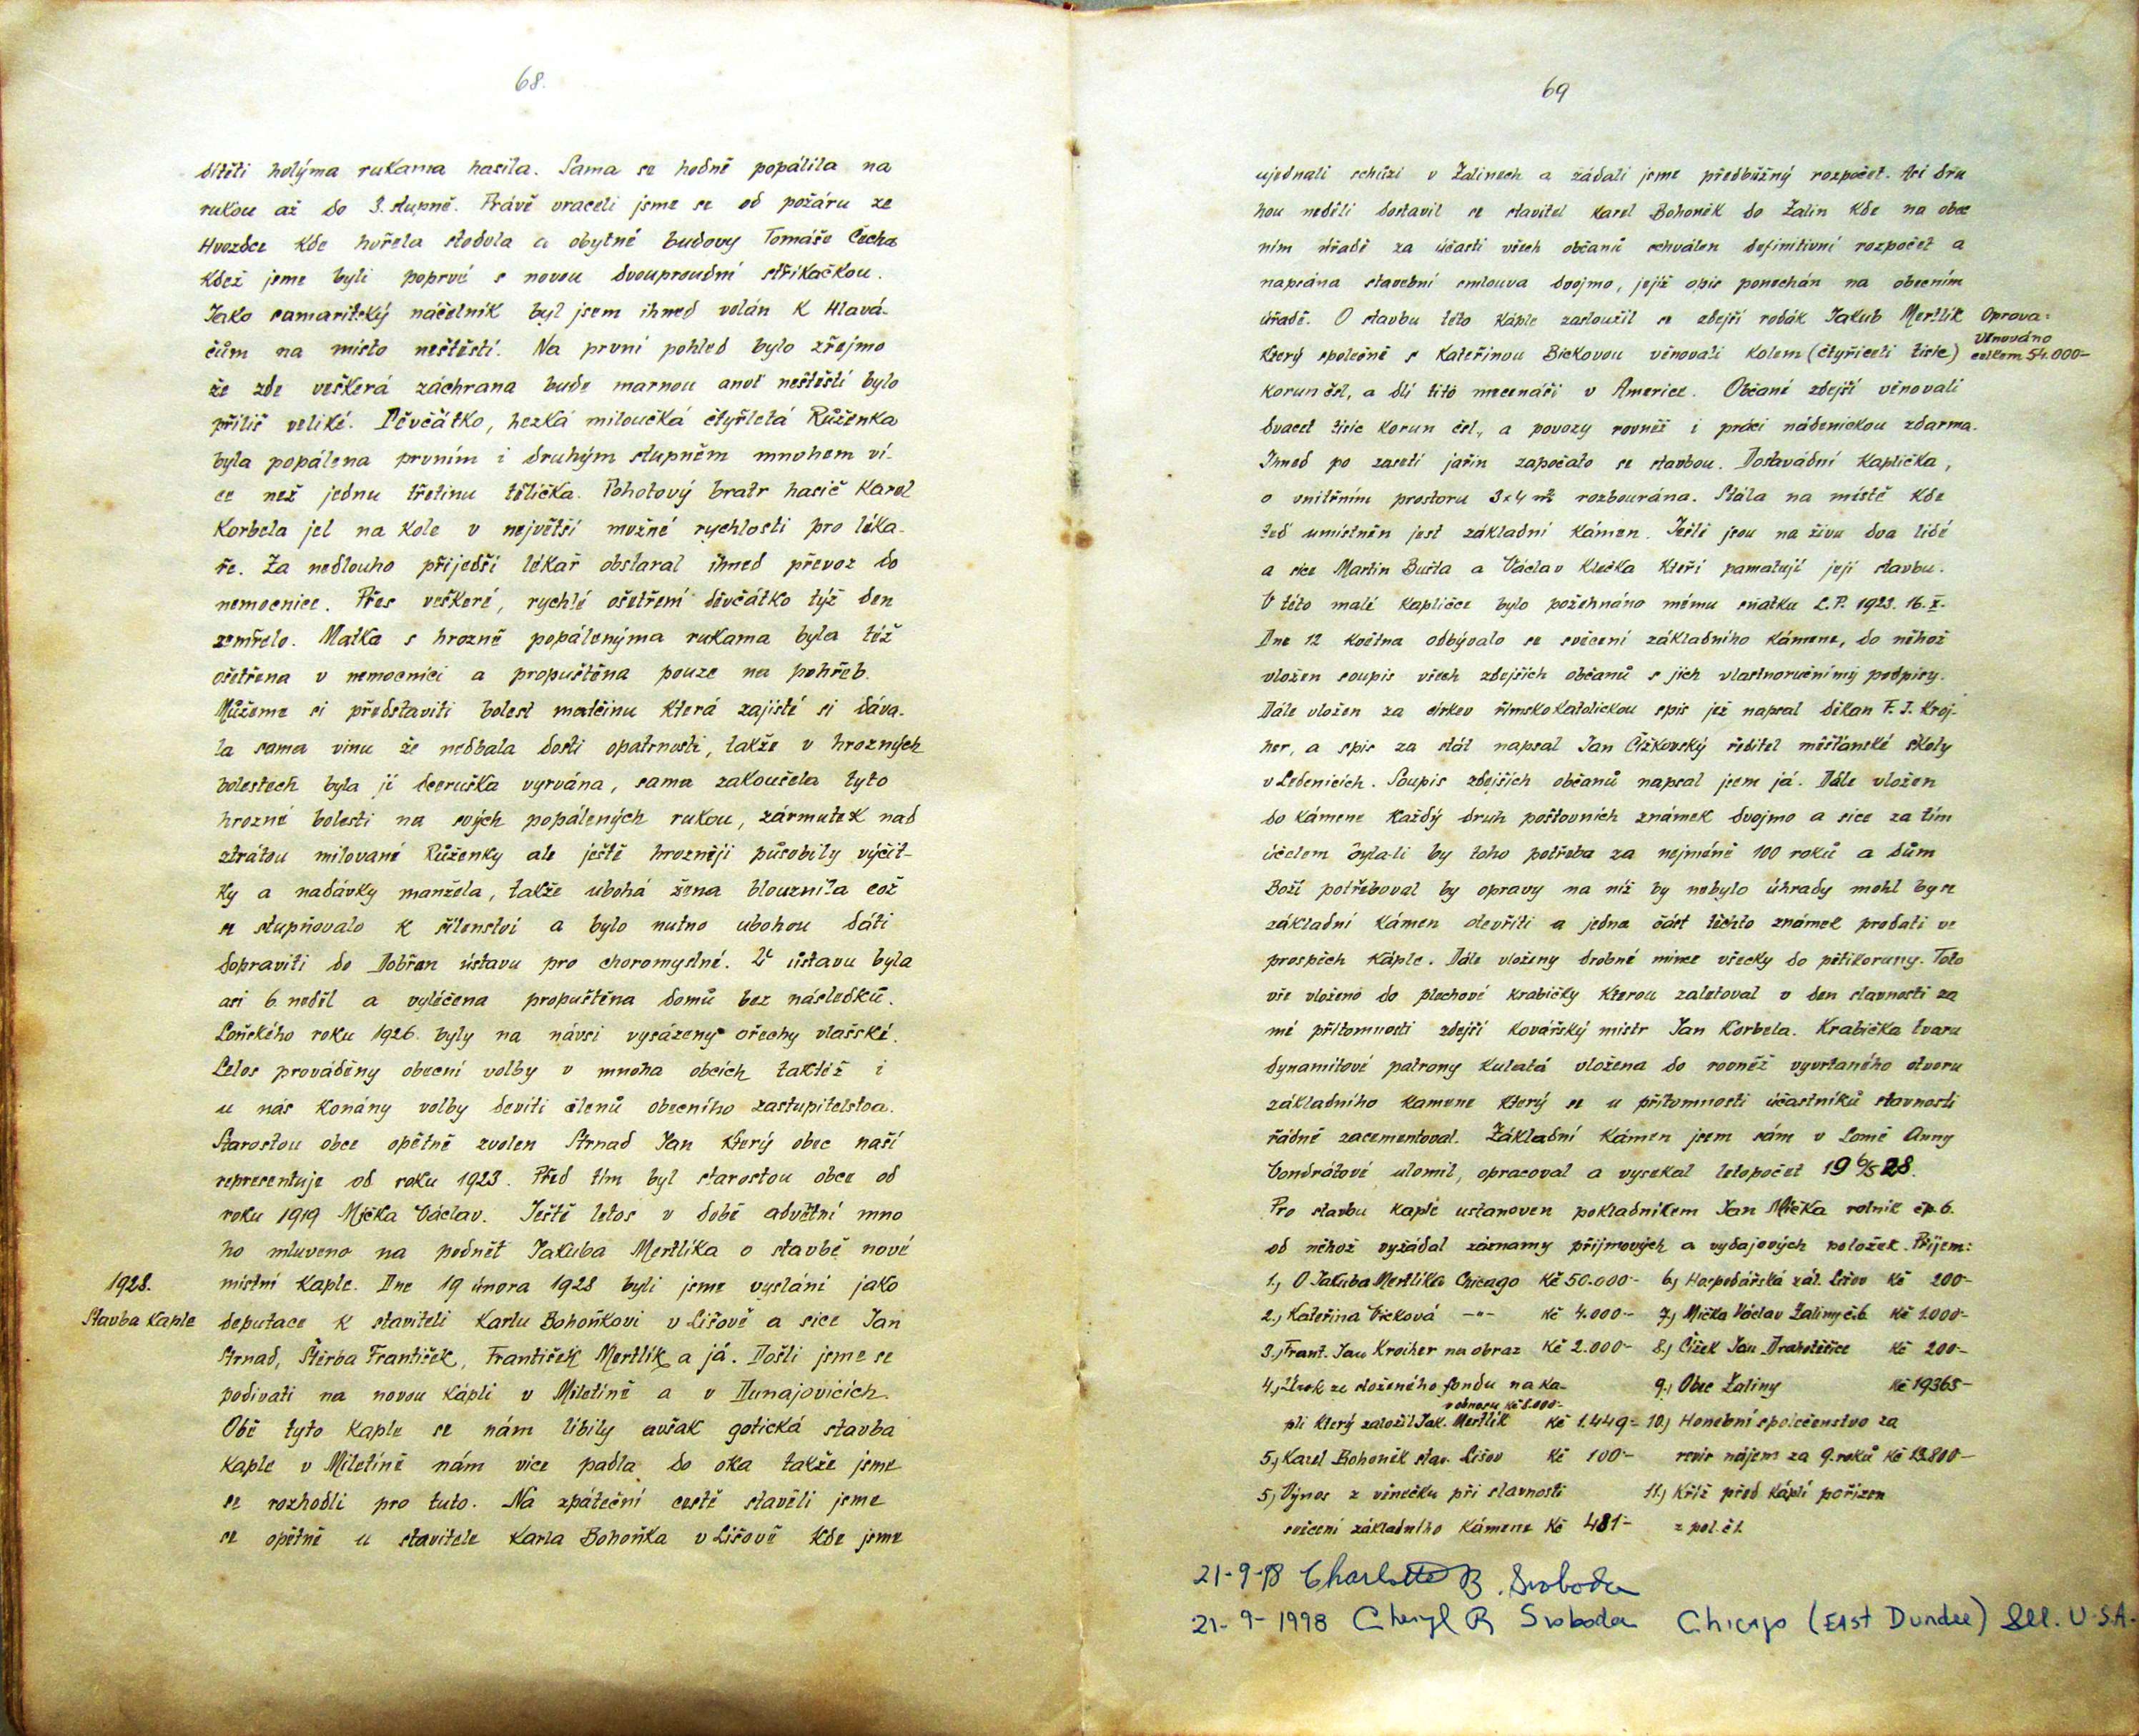 68.
dítěti holýma rukama hasila. Sama se hodně popálila na
rukou až do 3. stupně. Právě vraceli jsme se od požáru ze
Hvozdce kde hořela stodola a obytné budovy Tomáše Čecha
kdež jsme byli poprvé s novou dvouproudní stříkačkou.
Jako samaritský náčelník byl jsem ihned volán k Hlavá-
čům na místo neštěstí. Na první pohled bylo zřejmo
že zde veškerá záchrana bude marnou anoť neštěstí bylo
příliš veliké. Děvčátko, hezká miloučká čtyřletá Růženka
byla popálena prvním i druhým stupněm mnohem ví-
ce než jednu třetinu tělíčka. Pohotový bratr hasič Karel
Korbela jel na kole v největší možné rychlosti pro léka-
ře. Za nedlouho přijedší lékař obstaral ihned převoz do
nemocnice. Přes veškeré, rychlé ošetření děvčátko týž den
zemřelo. Matka s hrozně popálenýma rukama byla též
ošetřena v nemocnici a propuštěna pouze na pohřeb.
Můžeme si představiti bolest matčinu která zajisté si dáva-
la sama vinu že nedbala dosti opatrnosti, takže v hrozných
bolestech byla jí dceruška vyrvána, sama zakoušela tyto
hrozné bolesti na svých popálených rukou, zármutek nad
ztrátou milované Růženky ale ještě hrozněji působily výčit-
ky a nadávky manžela, takže ubohá žena blouznila což
se stupňovalo k šílenství a bylo nutno ubohou dáti
dopraviti do Dobřan ústavu pro choromyslné. V ústavu byla
asi 6 neděl a vyléčena propuštěna domů bez následků.
Loňského roku 1926. byly na návsi vysázeny ořechy vlašské.
Letos prováděny obecní volby v mnoha obcích taktéž i
u nás konány volby devíti členů obecního zastupitelstva.
Starostou obce opětně zvolen Strnad Jan který obec naší
representuje od roku 1923. Před tím byl starostou obce od
roku 1919 Mička Václav. Ještě letos v době advětní mno
ho mluveno na podnět Jakuba Mertlíka o stavbě nové
1928. místní kaple. Dne 19 února 1928 byli jsme vysláni jako
Stavba kaple deputace k staviteli Karlu Bohoňkovi v Lišově a sice Jan
Strnad, Štěrba František, František Mertlík a já. Došli jsme se
podívati na novou kápli v Miletíně a v Dunajovicích.
Obě tyto kaple se nám líbily avšak gotická stavba
kaple v Miletíně nám více padla do oka takže jsme
se rozhodli pro tuto. Na zpáteční cestě stavěli jsme
se opětně u stavitele Karla Bohoňka v Lišově kde jsme
69
ujednali schůzi v Žalinech a žádali jsme předběžný rozpočet. Asi dru
hou neděli dostavil se stavitel Karel Bohoněk do Žalin kde na obec
ním úřadě za účasti všech občanů schválen definitivní rozpočet a
napsána stavební smlouva dvojmo, jejíž opis ponechán na obecním
úřadě. O stavbu této káple zasloužil se zdejší rodák Jakub Mertlík Oprava:
který společně s Kateřinou Bickovou věnovali kolem (čtyřiceti tisíc) Věnováno celkem 54.000-
korun čsl, a dlí tito mecenáši v Americe. Občané zdejší věnovali
dvacet tisíc korun čsl., a povozy rovněž i práci nádenickou zdarma.
Ihned po zasetí jařin započato se stavbou. Dosavádní kaplička,
o vnitřním prostoru 3×4 m² rozbourána. Stála na místě kde
teď umístněn jest základní kámen. Ještě jsou na živu dva lidé
a sice Martin Bušta a Václav Klečka kteří pamatují její stavbu.
V této malé kapličce bylo požehnáno mému sňatku L.P. 1923. 16.X.
Dne 12 května odbývalo se svěcení základního kámene, do něhož
vložen soupis všech zdejších občanů s jich vlastnoručnímý podpisy.
Dále vložen za církev římskokatolickou spis jež napsal děkan F. J. Kroj-
her, a spis za stát napsal Jan Čížkovský ředitel měšťanské školy
v Ledenicích. Soupis zdejších občanů napsal jsem já. Dále vložen
do kámene každý druh poštovních známek dvojmo a sice za tím
účelem byla-li by toho potřeba za nejméně 100 roků a dům
Boží potřeboval by opravy na níž by nebylo úhrady mohl by se
základní kámen otevříti a jedna část těchto známek prodati ve
prospěch káple. Dále vloženy drobné mince všecky do pětikoruny. Toto
vše vloženo do plechové krabičky kterou zaletoval v den slavnosti za
mé přítomnosti zdejší kovářský mistr Jan Korbela. Krabička tvaru
dynamitové patrony kulatá vložena do rovněž vyvrtaného otvoru
základního kamene který se u přítomnosti účastníků slavnosti
řádně zacementoval. Základní kámen jsem sám v Lomě Anny
Vondrátové ulomil, opracoval a vysekal letopočet 19 6/5 28.
Pro stavbu kaple ustanoven pokladníkem Jan Mička rolník čp. 6.
od něhož vyžádal záznamy příjmových a vydajových položek. Příjem:
1.) O Jakuba Mertlíka Chicago Kč 50.000- 6.) Hospodářská zál. Lišov Kč 200-
2.) Kateřina Bicková -"- Kč 4.000- 7.) Mička Václav Žaliny č.6 Kč 1.000-
3.) Frant. Jan Kroiher na obraz Kč 2.000- 8.) Čížek Jan Drahotěšice Kč 200-
4.) Úrok ze složeného fondu na ka- 9.) Obec Žaliny Kč 19365-
v obnosu Kč 8.000-
pli který založil Jak. Mertlík Kč 1.449- 10.) Honební společenstvo za
5.) Karel Bohoněk stav. Lišov Kč 100- revír nájem za 9. roků Kč 13.800-
5) Výnos z věnečku při slavnosti 11.) Kříž před káplí pořízen
svěcení základního kámene Kč 481- z pol. č 1.
21-9-98 Charlotte B. Svoboda
21-9-1998 Cheryl R Svoboda Chicago (East Dundee) Ill. U.S.A.